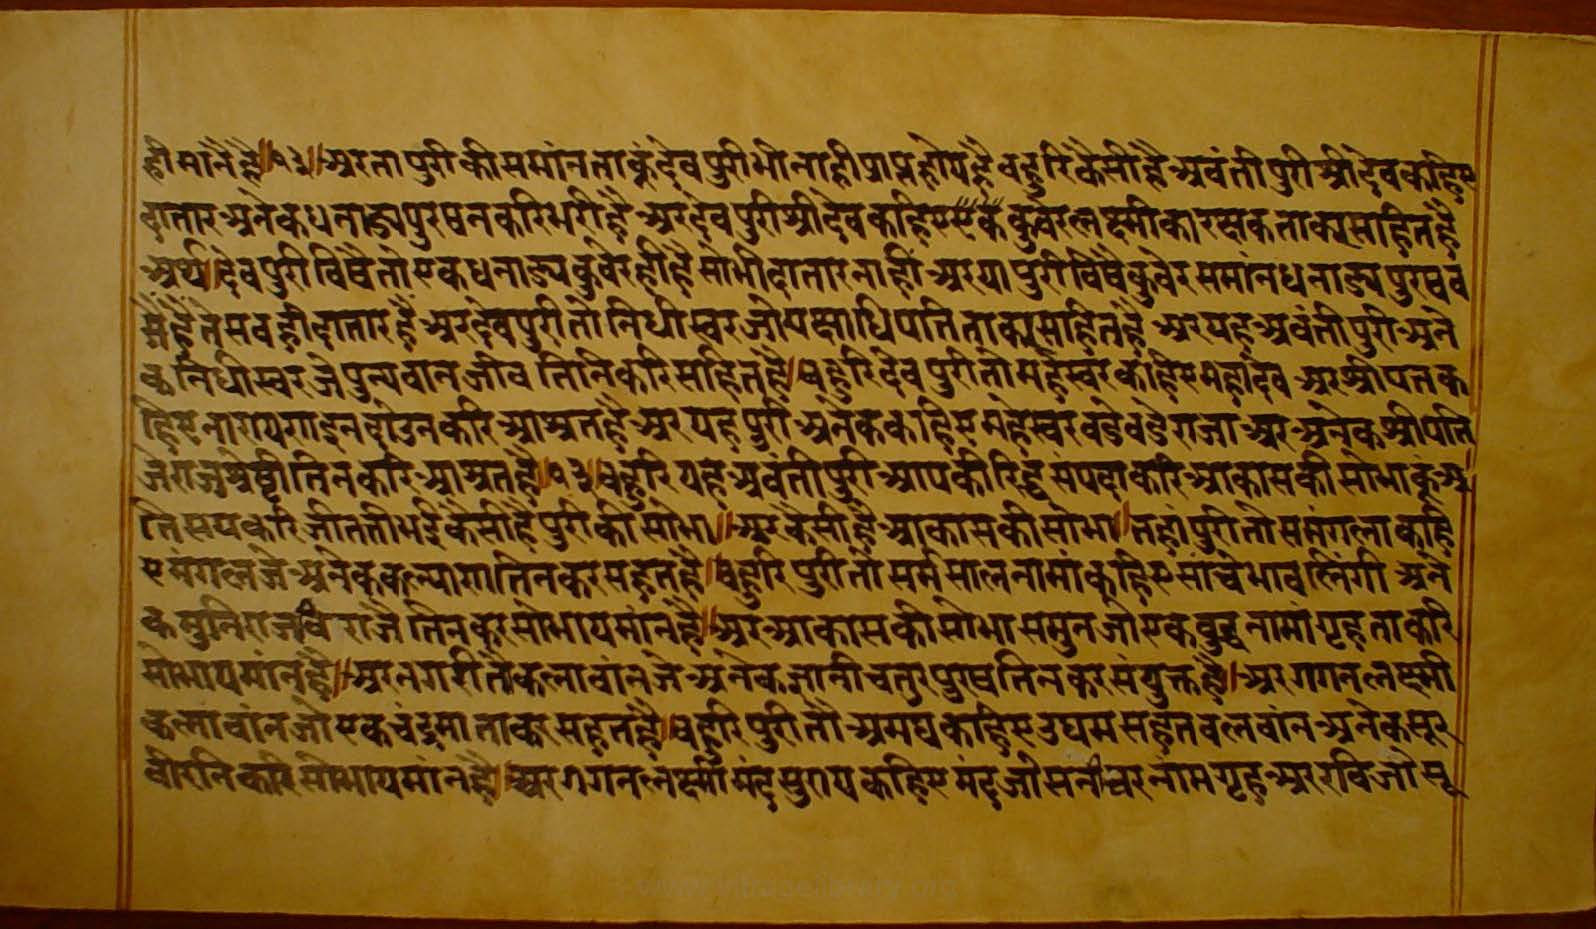 ही मानै है॥१२॥अर ता पुरी की समांन ताकूं देव पुरी भी नाही प्राप्त होय है बहुरि कैसी है अवंती पुरी श्री देव कहिए
दातार अनेक धनाढ्य पुरषन करि भरी है अर देव पुरी श्री देव कहिए एक कुवेर लक्ष्मी का रक्षक ताकर साहित है
अर्थ॥देव पुरी विषै तो एक धनाढ्य कुवेर ही है सो भी दातार नाहीं अर या पुरी विषै कुवेर समांन धनाढ्य पुरष व
से है ते सब ही दातार है अर देव पुरी तो निधीस्वर जो यक्षाधिपति ताकर साहित है अर यह अवंती पुरी अने
क निधीस्वर जे पुन्यवान जीव तिनि करि सहित है॥बहुरि देव पुरी तो महेस्वर कहिए महादेव अर श्री पत क
हिए नारायण इन दोउन करि आश्रत है अर यह पुरी अनेक कहिए महेस्वर बडे बडे राजा अर अनेक श्री पति
जे राज श्रेष्टी तिन करि आश्रत है॥१३॥बहुरि यह अवंती पुरी आपकी रिद्ध संपदा करि आकास की सोभा कूं अ
ति सय करि जीतती भई कैसी है पुरी की सोभा॥अर कैसी है आकास की सोभा॥तहां पुरी तो समंगला कहि
ए मंगल जे अनेक कल्याण तिन कर सहत है॥बहुरि पुरी तो सर्म साल नामां कहिए सांचे भाव लिंगी अने
क मुनिराज विराजै तिन कर सोभायमांन है॥अर आकास की सोभा समुन जो एक बुद्ध नामां गृह ता करि
सोभायमांन है॥अर नगरी तो कलावांन जे अनेक ज्ञानी चतुर पुरष तिन कर संयुक्त है॥अर गगन लक्ष्मी
कलावांन जो एक चंद्रमा ताकर सहत है॥बहुरि पुरी तो अमघ कहिए उघम सहत बलवांन अनेक सूर
वीरनि करि सोभायमांन है॥अर गगन लक्ष्मी मंद सुराय कहिए मंद जो सनीश्चर नाम गृह अर रवि जो सू